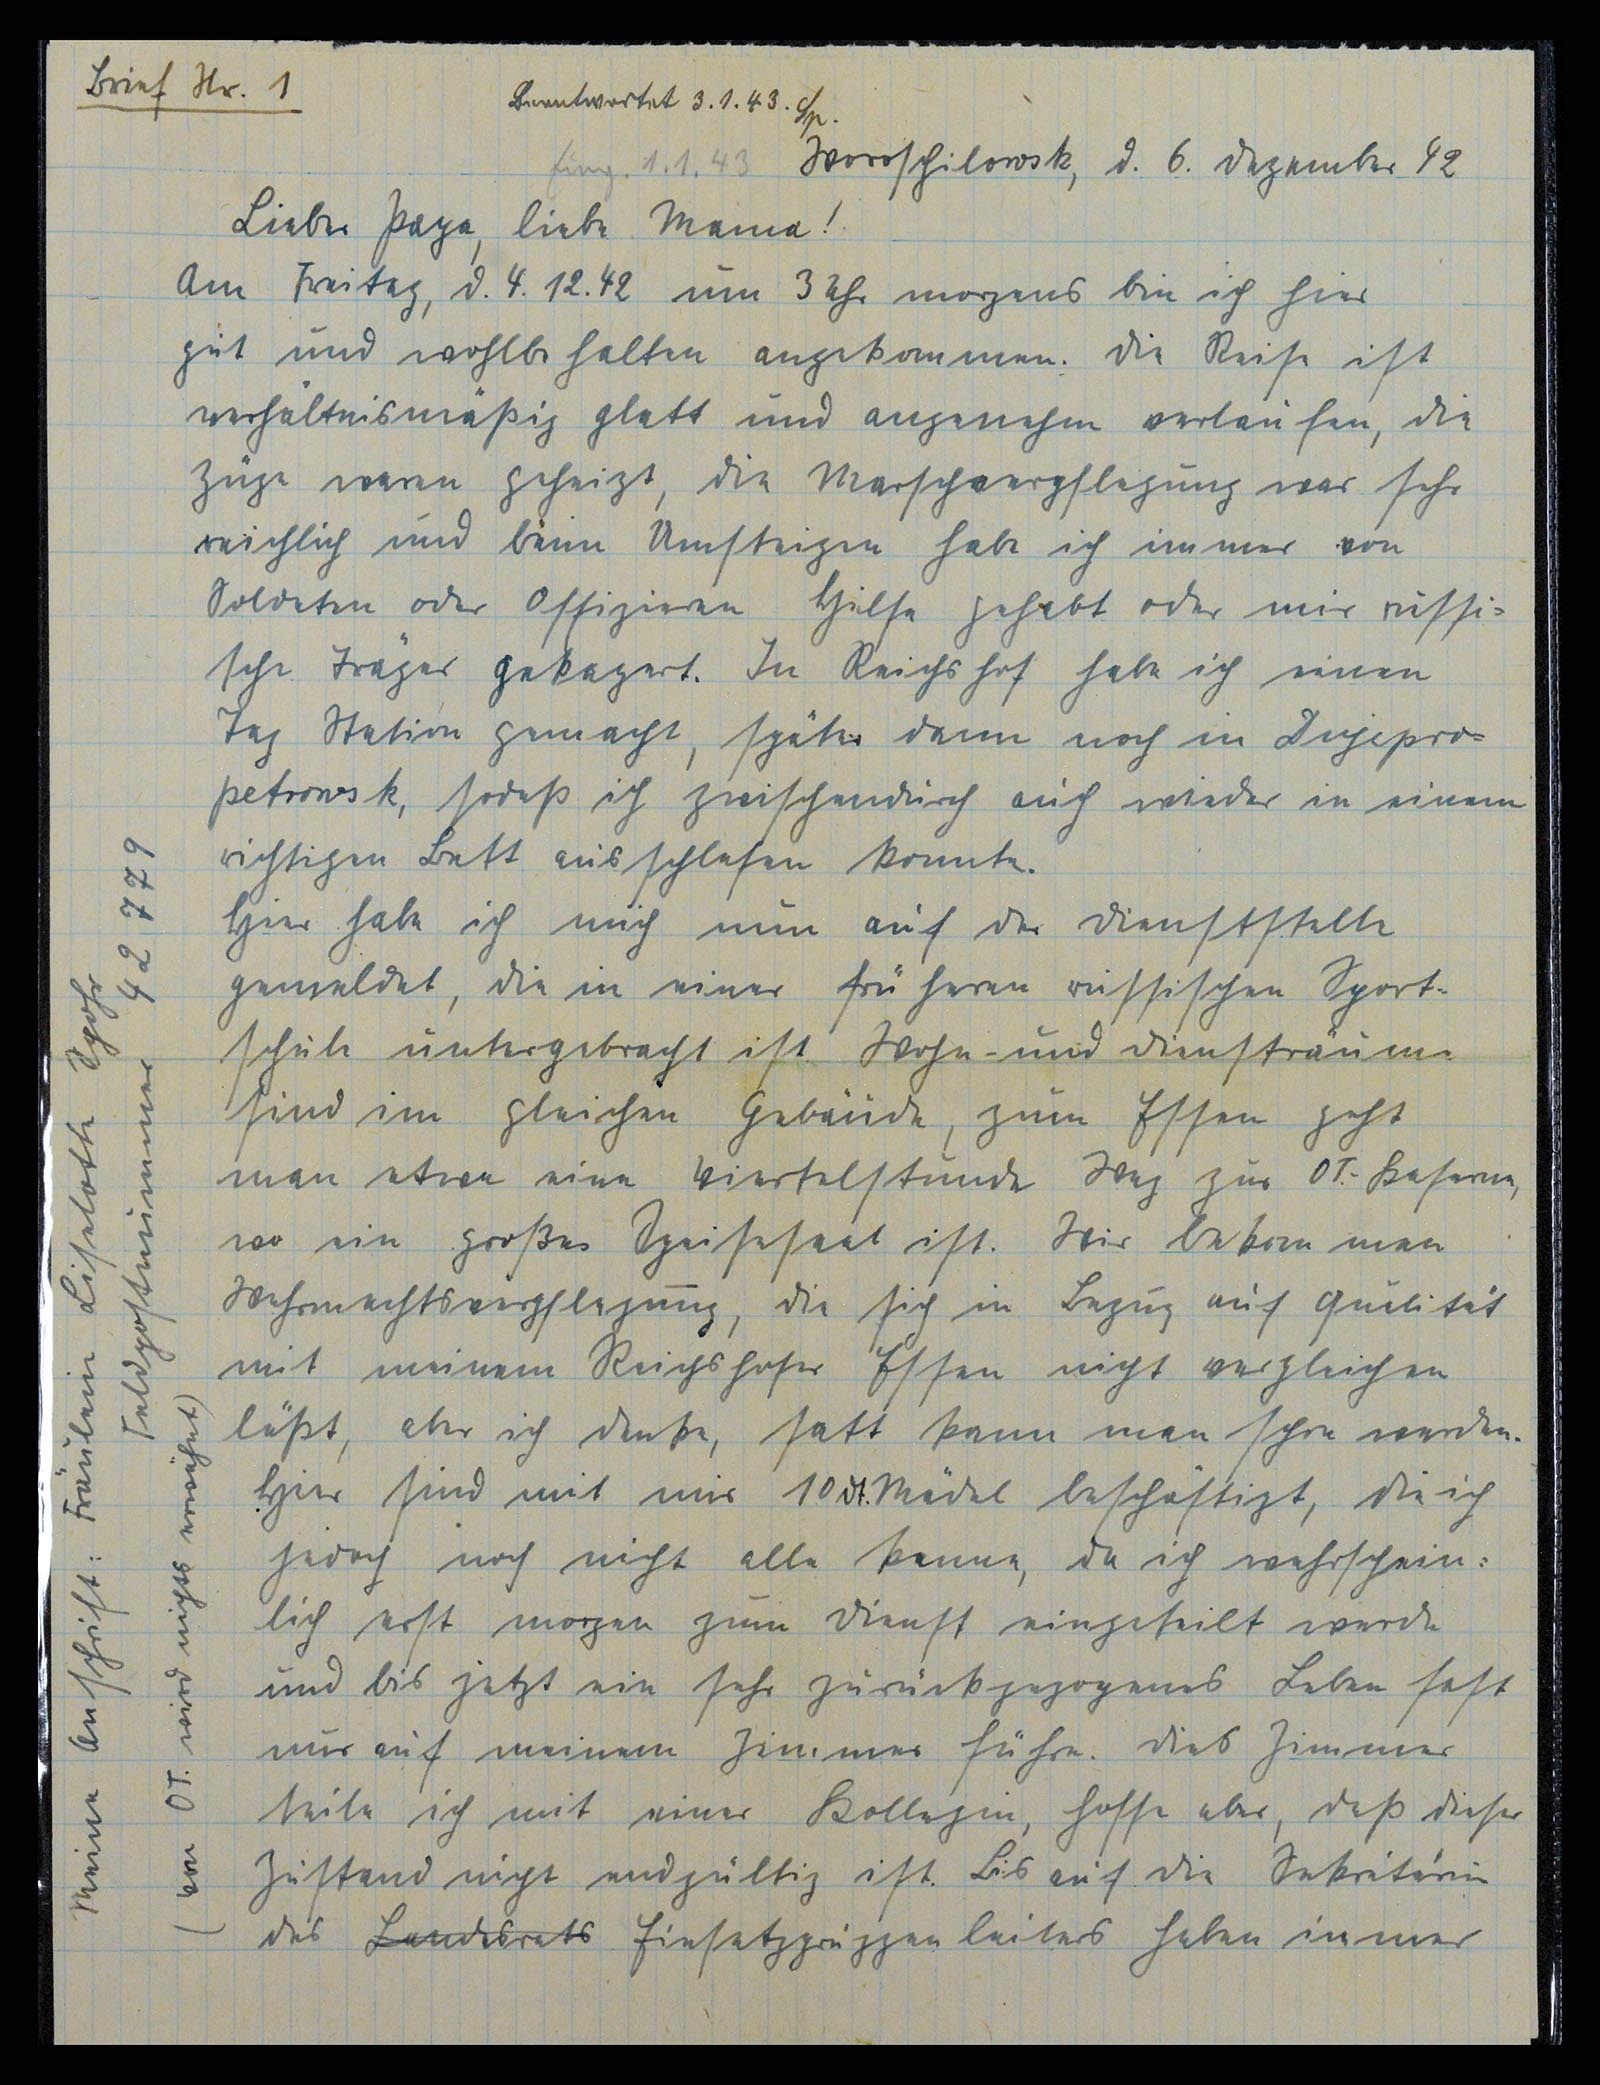 Brief Nr. 1
Beantwortet 3.1.43. Sp.
Eing. 1.1.43
Woroschilowsk, d. 6. Dezember 42
Lieber Papa, liebe Mama!
Am Freitag, d. 4. 12. 42 um 3 Uhr morgens bin ich hier
gut und wohlbehalten angekommen. Die Reise ist
verhältnismäßig glatt und angenehm verlaufen, die
Züge waren geheizt, die Marschverpflegung war sehr
reichlich und beim Umsteigen habe ich immer von
Soldaten oder Offizieren Hilfe gehabt oder mir russi=
sche Träger gekapert. In Reichshof habe ich einen
Tag Station gemacht, später dann noch in Dnjepro=
petrowsk, sodaß ich zwischendurch auch wieder in einem
richtigen Bett ausschlafen konnte.
Hier habe ich mich nun auf der Dienststelle
gemeldet, die in einer früheren russischen Sport-
schule untergebracht ist. Wohn- und Diensträume
sind im gleichen Gebäude, zum Essen geht
man etwa eine Viertelstunde Weg zur OT.-Kaserne,
wo ein großer Speisesaal ist. Wir bekommen
Wehrmachtsverpflegung, die sich in Bezug auf Qualität
mit meinem Reichshofer Essen nicht vergleichen
läßt, aber ich denke, satt kann man schon werden.
Hier sind mit mir 10 dt. Mädel beschäftigt, die ich
jedoch noch nicht alle kenne, da ich wahrschein=
lich erst morgen zum Dienst eingeteilt werde
und bis jetzt ein sehr zurückgezogenes Leben fast
nur auf meinem Zimmer führe. Dies Zimmer
teile ich mit einer Kollegin, hoffe aber, daß dieser
Zustand nicht endgültig ist. Bis auf die Sekretärin
des Landesrats Einsatzgruppenleiters haben immer
Meine Anschrift: Fräulein Liselotte Spohr
Feldpostnummer 42 779
(von OT. wird nichts erwähnt)